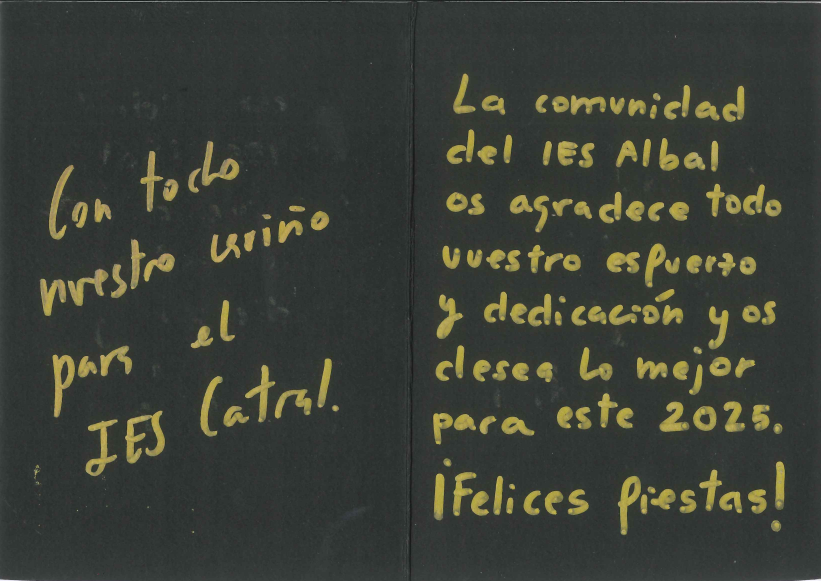 Con todo
nuestro cariño
para el
IES Catral.
La comunidad
del IES Albal
os agradece todo
vuestro esfuerzo
y dedicación y os
desea lo mejor
para este 2025.
¡Felices fiestas!